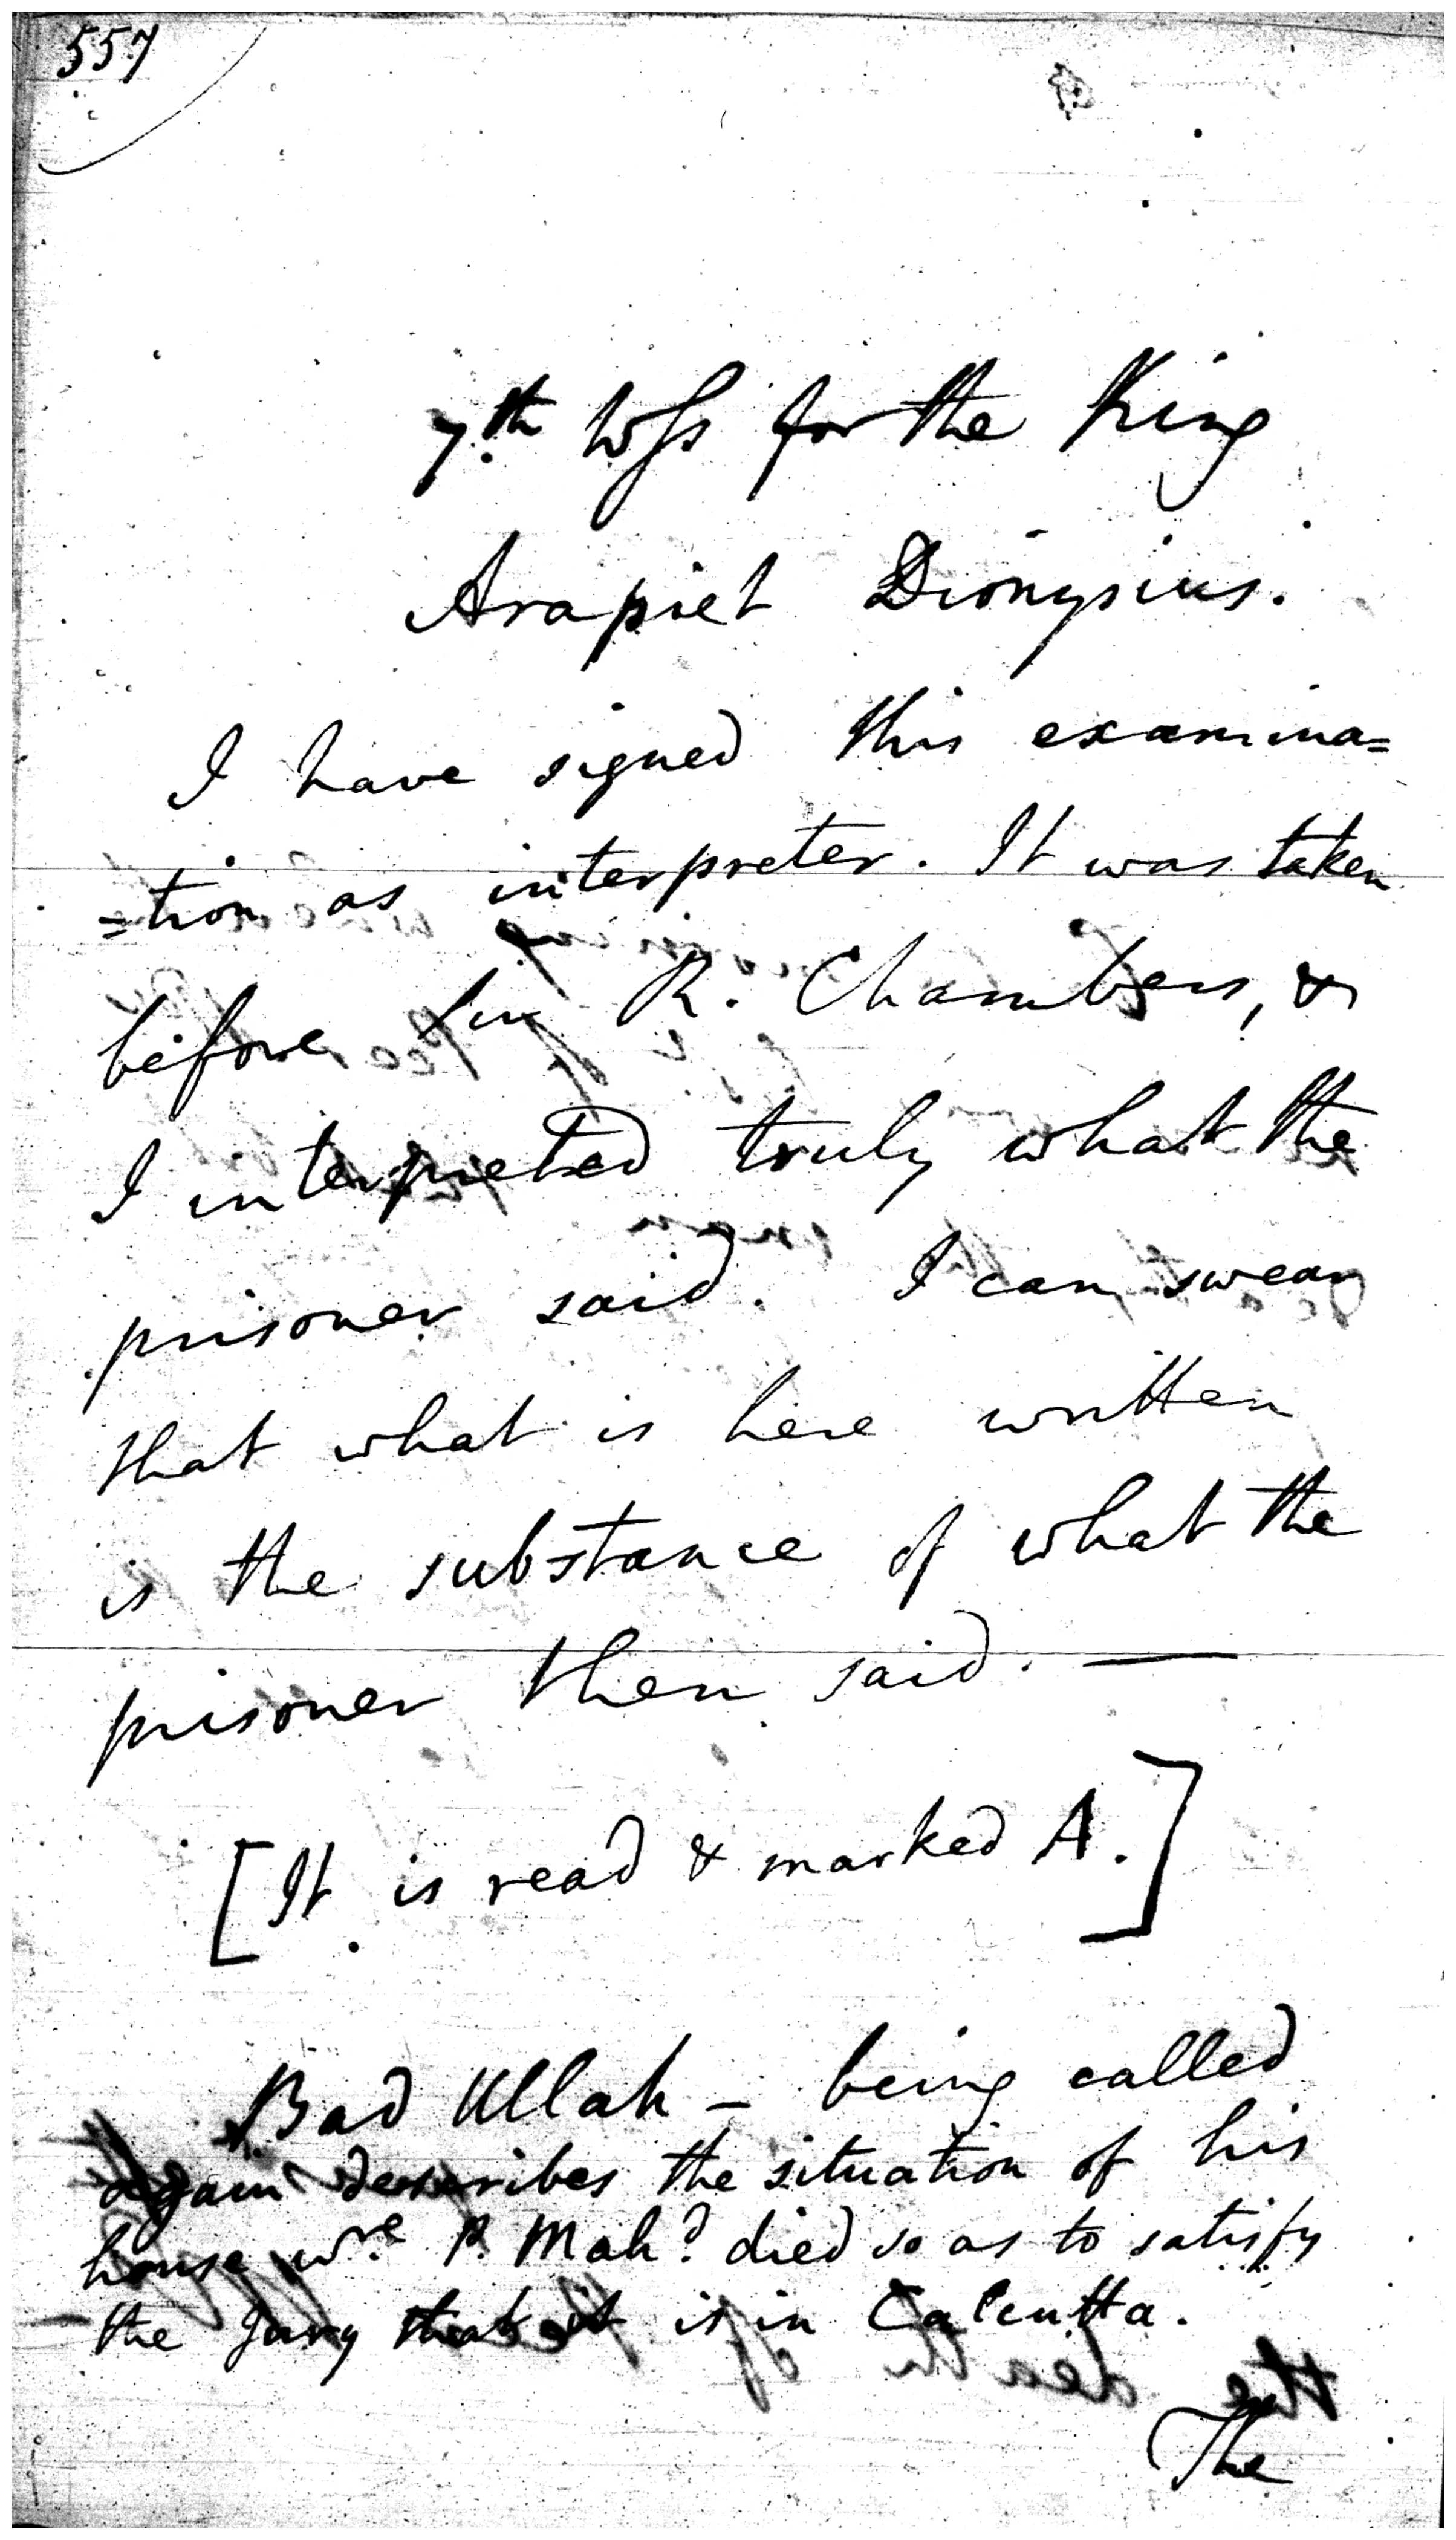 557
7.th Wss for the King
Arapiet Dionysius.
I have signed this examina=
=tion as interpreter. It was taken
before Sir R. Chambers, &
I interpreted truly what the
prisoner said. I can swear
that what is here written
is the substance of what the
prisoner then said. —
[It is read & marked A.]
Bad Ullah — being called
again describes the situation of his
house wre P. Mahd died so as to satisfy
the Jury that it is in Calcutta.
The